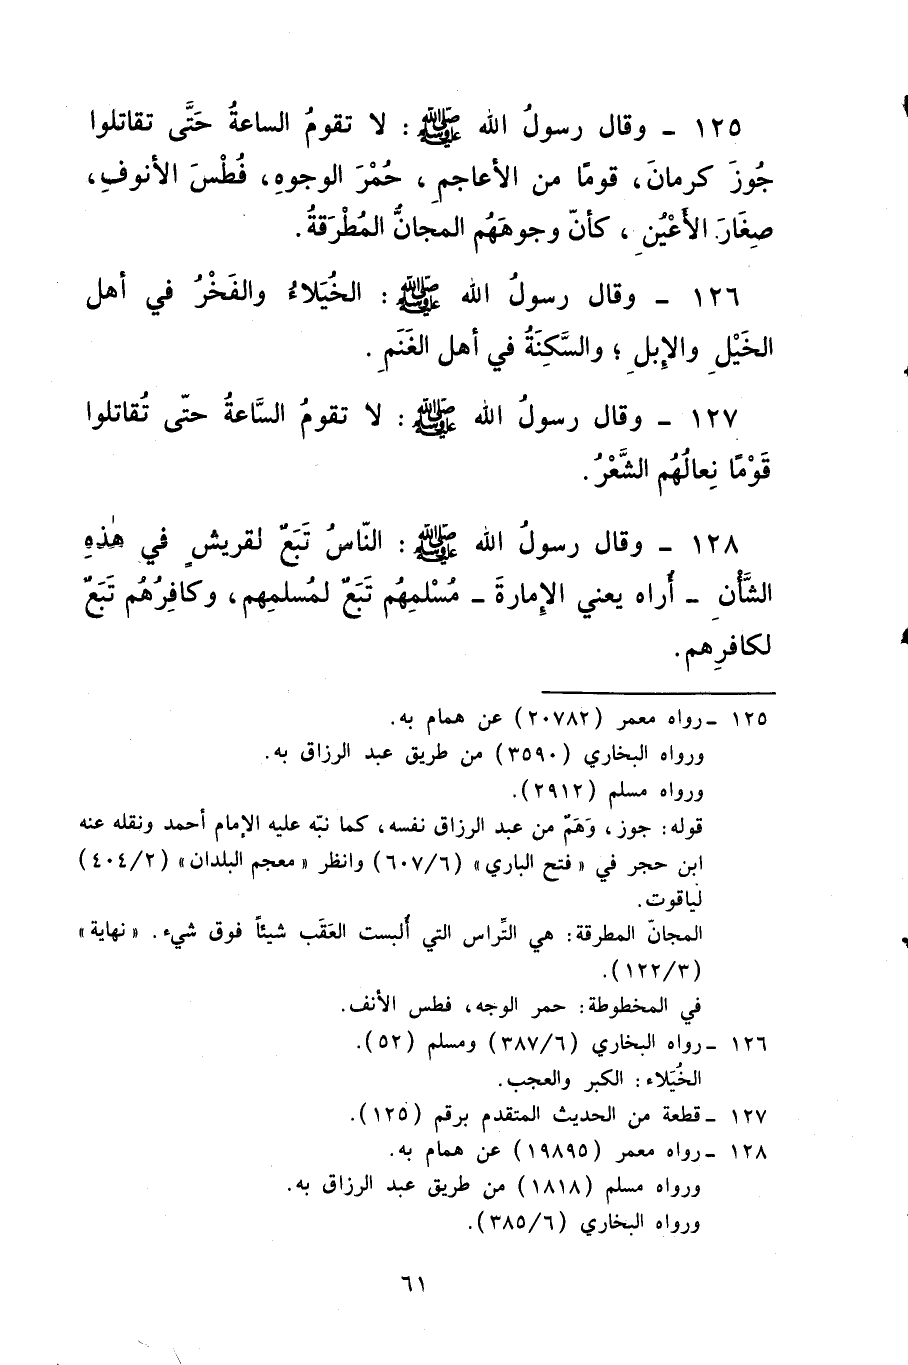 ١٢٥ ـ وقال رسولُ الله ﷺ : لا تقومُ الساعةُ حَتَّى تقاتلوا
جُوزَ كرمانَ، قومًا من الأعاجمِ، حُمْرَ الوجوهِ، فُطْسَ الأنوفِ،
صِغَارَ الأَعْيُنِ، كأنّ وجوهَهُم المجانُّ المُطْرَقةُ.
١٢٦ ـ وقال رسولُ الله ﷺ : الخُيَلاءُ والفَخْرُ في أهل
الخَيْلِ والإِبلِ؛ والسَّكِنَةُ في أهل الغَنَمِ.
١٢٧ ـ وقال رسولُ الله ﷺ : لا تقومُ السَّاعةُ حتّى تُقاتلوا
قَوْمًا نِعالُهُم الشَّعْرُ.
١٢٨ ـ وقال رسولُ الله ﷺ : النّاسُ تَبَعٌ لقريشٍ في هٰذهِ
الشَّأْنِ ـ أُراه يعني الإِمارةَ ـ مُسْلمِهُم تَبَعٌ لمُسلمِهِم، وكافِرُهُم تَبَعٌ
لكافرِهِم.
١٢٥ ـ رواه معمر (٢٠٧٨٢) عن همام به.
ورواه البخاري (٣٥٩٠) من طريق عبد الرزاق به.
ورواه مسلم (٢٩١٢).
قوله: جوز، وَهَمٌ من عبد الرزاق نفسه، كما نبّه عليه الإمام أحمد ونقله عنه
ابن حجر في «فتح الباري» (٦٠٧/٦) وانظر «معجم البلدان» (٤٠٤/٢)
لياقوت.
المجانّ المطرقة: هي التِّراس التي أُلبست العَقَب شيئاً فوق شيء. «نهاية»
(١٢٢/٣).
في المخطوطة: حمر الوجه، فطس الأنف.
١٢٦ ـ رواه البخاري (٣٨٧/٦) ومسلم (٥٢).
الخُيَلاء: الكبر والعجب.
١٢٧ ـ قطعة من الحديث المتقدم برقم (١٢٥).
١٢٨ ـ رواه معمر (١٩٨٩٥) عن همام به.
ورواه مسلم (١٨١٨) من طريق عبد الرزاق به.
ورواه البخاري (٣٨٥/٦).
٦١